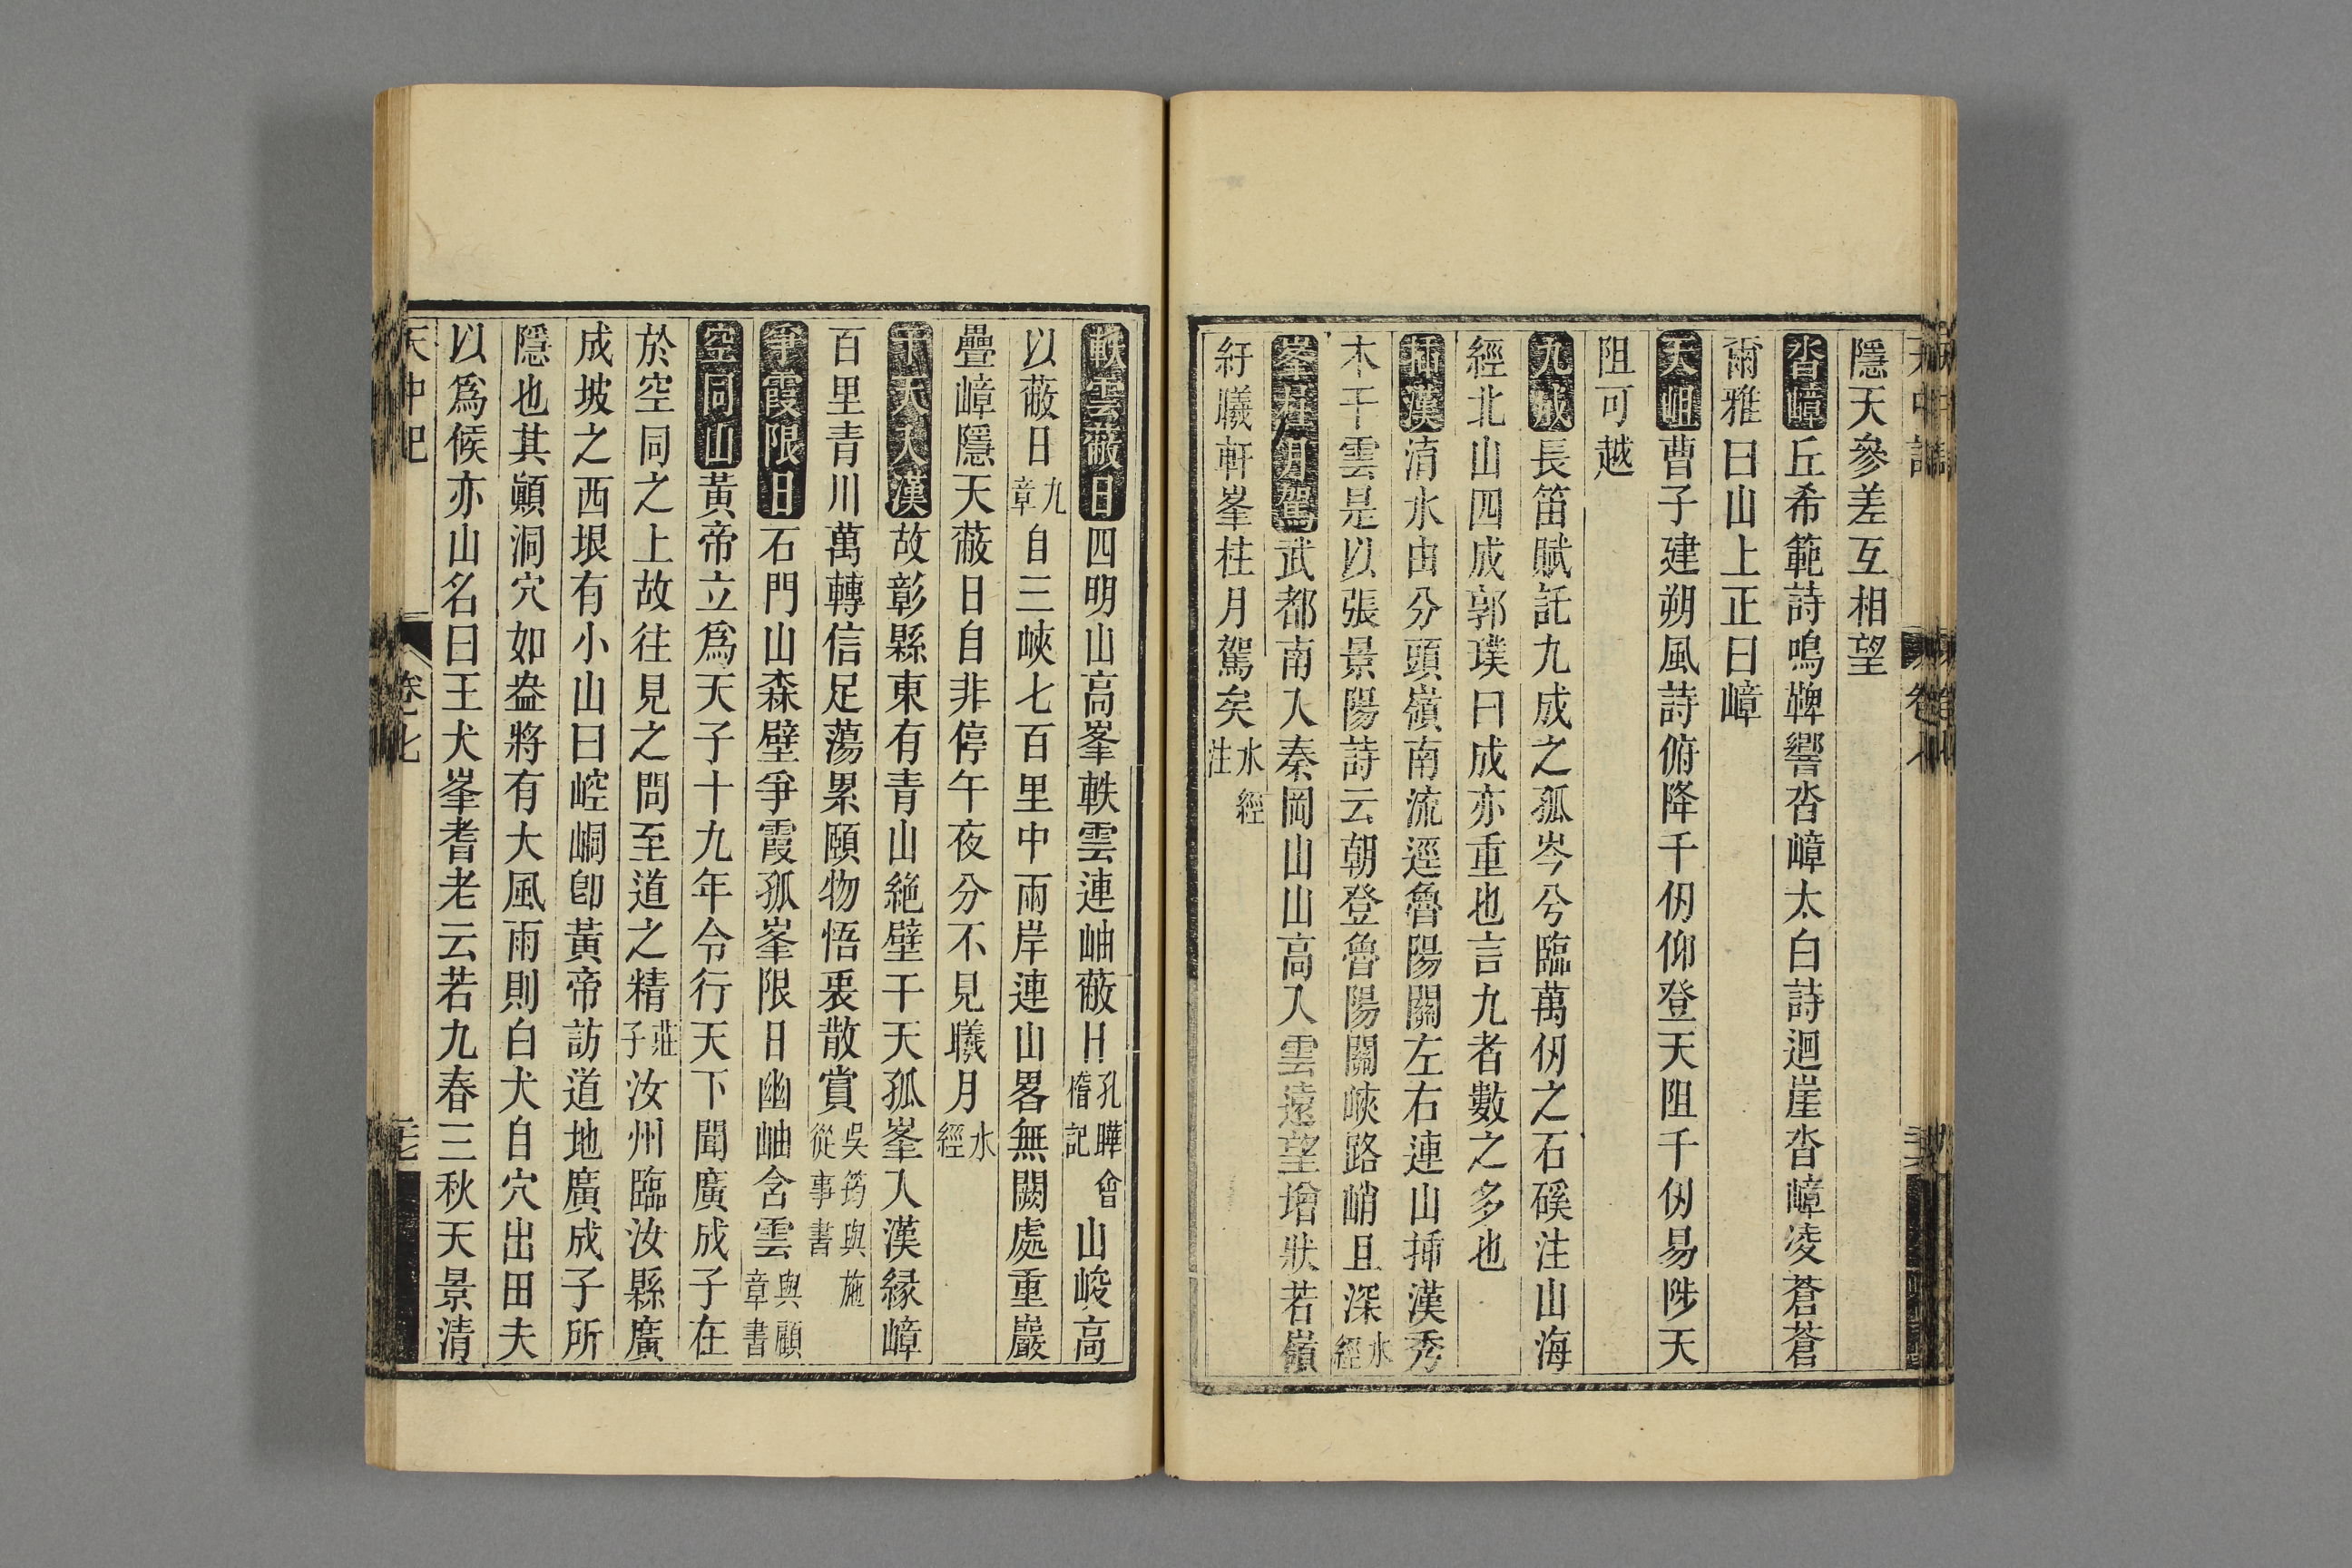 隱天參差互相望
沓嶂丘希範詩鳴鞞響沓嶂太白詩迴崖沓嶂凌蒼蒼
爾雅曰山上正曰嶂
天岨曹子建朔風詩俯降千仞仰登天阻千仞易陟天
阻可越
九成長笛賦託九成之孤岑兮臨萬仞之石磎注山海
經北山四成郭璞曰成亦重也言九者數之多也
插漢淯水由分頭嶺南流逕魯陽關左右連山揷漢秀
木干雲是以張景陽詩云朝登魯陽關峽路峭且深水經
峯柱月駕武都南入秦岡山山高入雲遠望增狀若嶺
紆曦軒峯柱月駕矣水經注
軼雲蔽日四明山高峯軼雲連岫蔽日孔曄會稽記山峻高
以蔽日九章自三峽七百里中兩岸連山畧無闕處重巖
疊嶂隱天蔽日自非停午夜分不見曦月水經
干天入漢故彰縣東有青山絶壁干天孤峯入漢緑嶂
百里青川萬轉信足蕩累頤物悟衷散賞吳筠與施從事書
爭霞限日石門山森壁爭霞孤峯限日幽岫含雲與顧章書
空同山黃帝立爲天子十九年令行天下聞廣成子在
於空同之上故往見之問至道之精莊子汝州臨汝縣廣
成坡之西垠有小山曰崆峒卽黃帝訪道地廣成子所
隱也其顚洞穴如盎將有大風雨則白犬自穴出田夫
以爲候亦山名曰王犬峯耆老云若九春三秋天景清
天中記
卷七